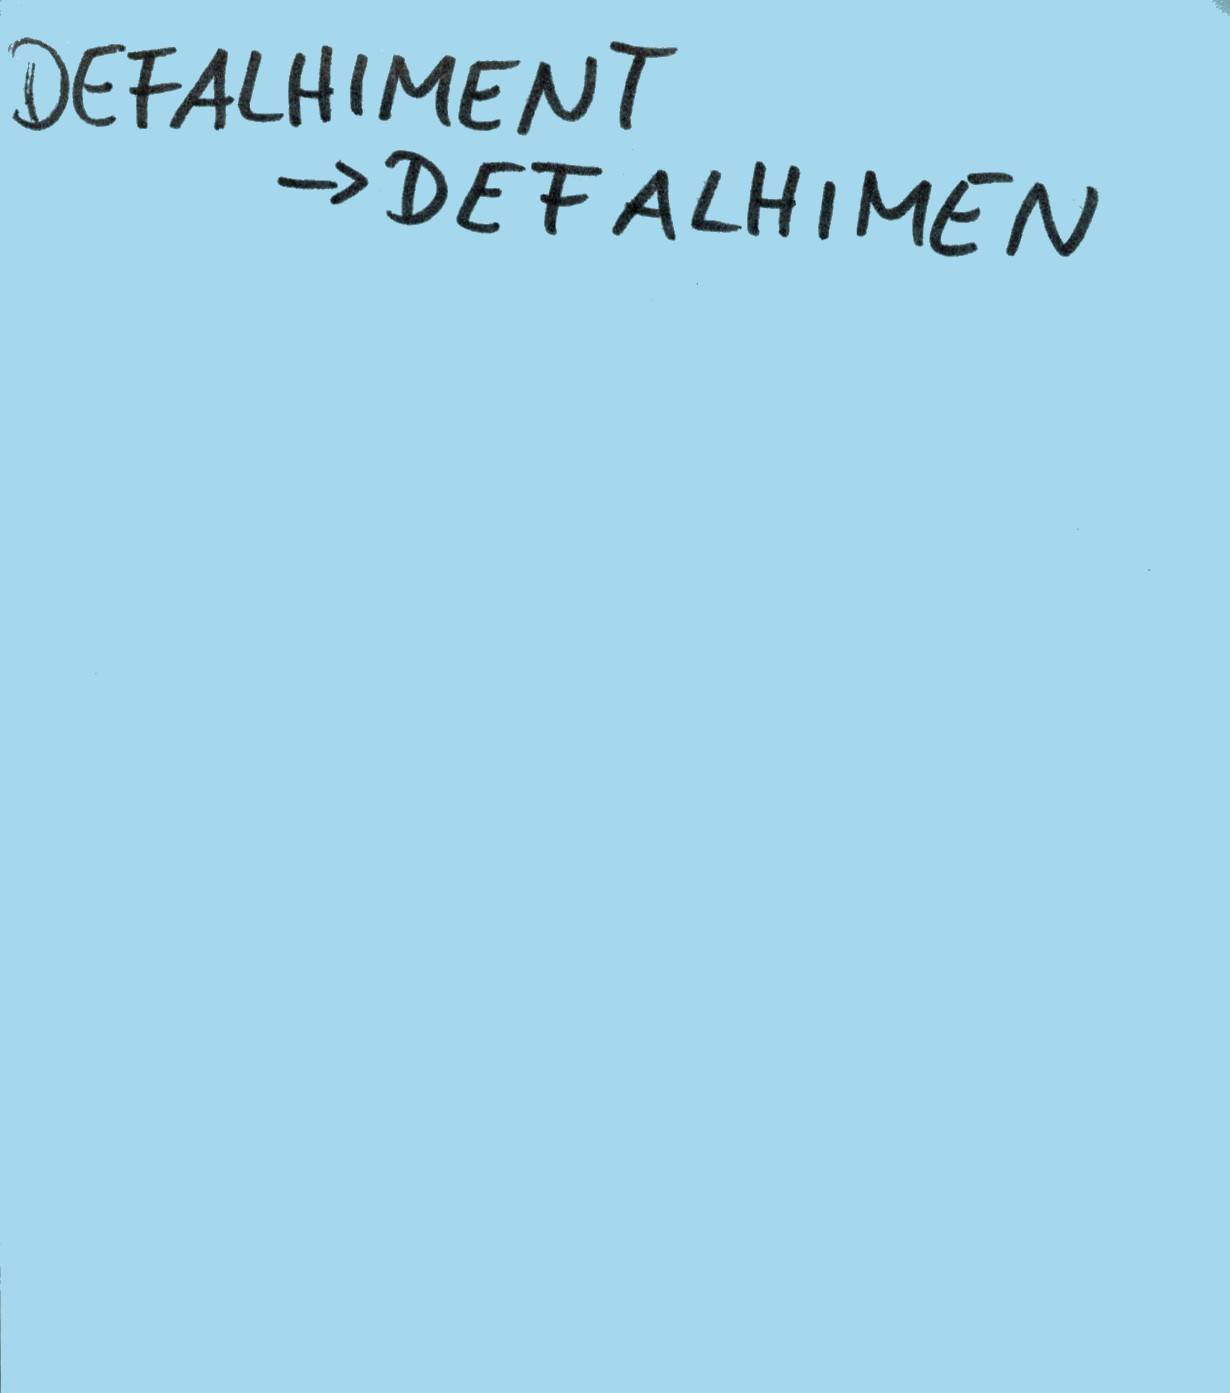 DEFALHIMENT
→ DEFALHIMEN